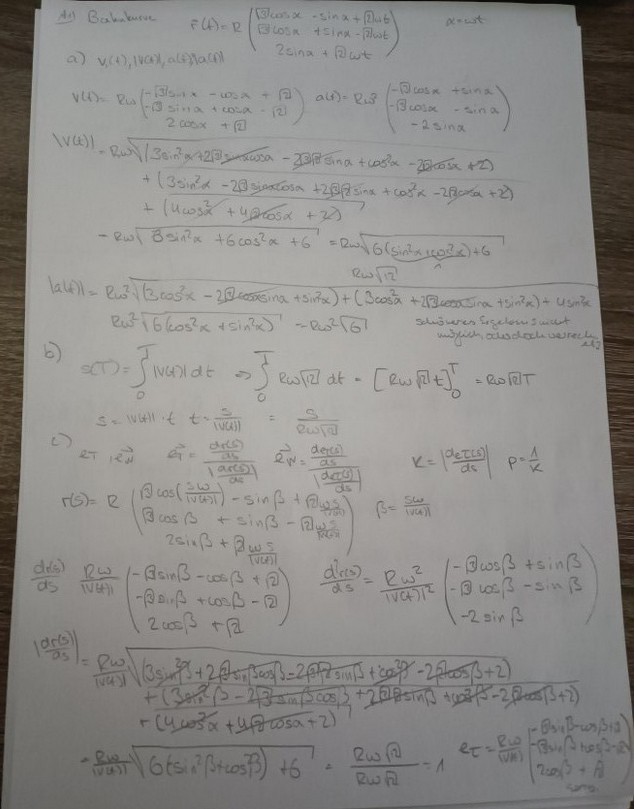 Bahnkurve r(t) = R ( √3cosα - sinα + √2ωt α=ωt
√3cosα + sinα - √2ωt
2sinα + √2ωt )
a) v(t), |v(t)|, a(t), |a(t)|
v(t) = Rω ( -√3sinα - cosα + √2 a(t) = Rω² ( -√3cosα + sinα
-√3sinα + cosα - √2 -√3cosα - sinα
2cosα + √2 ) -2sinα )
|v(t)| = Rω √(3sin²α + 2√3sinαcosα - 2√3√2sinα + cos²α - 2√2cosα + 2)
+ (3sin²α - 2√3sinαcosα + 2√3√2sinα + cos²α - 2√2cosα + 2)
+ (4cos²α + 4√2cosα + 2)
= Rω √6sin²α + 6cos²α + 6 = Rω √6(sin²α + cos²α) + 6
1
Rω√12
|a(t)| = Rω² √(3cos²α - 2√3cosαsinα + sin²α) + (3cos²α + 2√3cosαsinα + sin²α) + 4sin²α
Rω² √6(cos²α + sin²α) = Rω²√6 schöneres Ergebnis nicht
möglich oder doch
b) s(T) = ∫₀ᵀ |v(t)| dt ⇒ ∫₀ᵀ Rω√12 dt = [Rω√12 t]₀ᵀ = Rω√12 T
s = |v(t)| · t t = s/|v(t)| = s/(Rω√12)
c) e_T, e_N e_T = (dr(s)/ds)/|dr(s)/ds| e_N = (de_T(s)/ds)/|de_T(s)/ds| K = |de_T(s)/ds| ρ = 1/K
r(s) = R ( √3cos(sω/|v(t)|) - sinβ + √2 ωs/|v(t)| β = sω/|v(t)|
√3cosβ + sinβ - √2 ωs/|v(t)|
2sinβ + √2 ωs/|v(t)| )
dr(s)/ds Rω/|v(t)| ( -√3sinβ - cosβ + √2 d²r(s)/ds = Rω²/|v(t)|² ( -√3cosβ + sinβ
-√3sinβ + cosβ - √2 -√3cosβ - sinβ
2cosβ + √2 ) -2sinβ )
|dr(s)/ds| = Rω/|v(t)| √(3sin²β + 2√3sinβcosβ - 2√3√2sinβ + cos²β - 2√2cosβ + 2)
+ (3sin²β - 2√3sinβcosβ + 2√3√2sinβ + cos²β - 2√2cosβ + 2)
+ (4cos²α + 4√2cosα + 2)
= Rω/|v(t)| √6(sin²β + cos²β) + 6 = Rω√12/Rω√12 = 1 e_T = Rω/|v(t)| ( -√3sinβ - cosβ + √2
-√3sinβ + cosβ - √2
2cosβ + √2 )